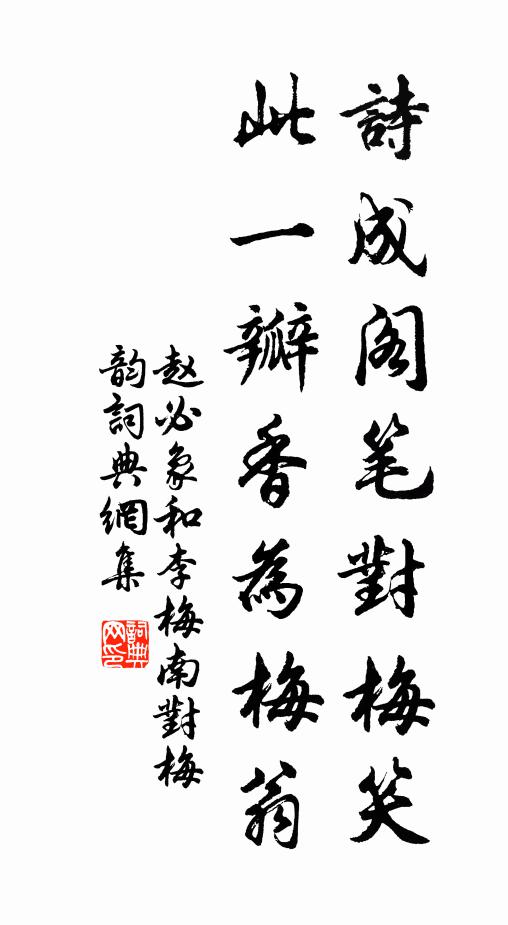 詩成阁笔對梅笑
此一瓣香為梅翁
赵必象和李梅南對梅
韵詞典網集
詞典網印